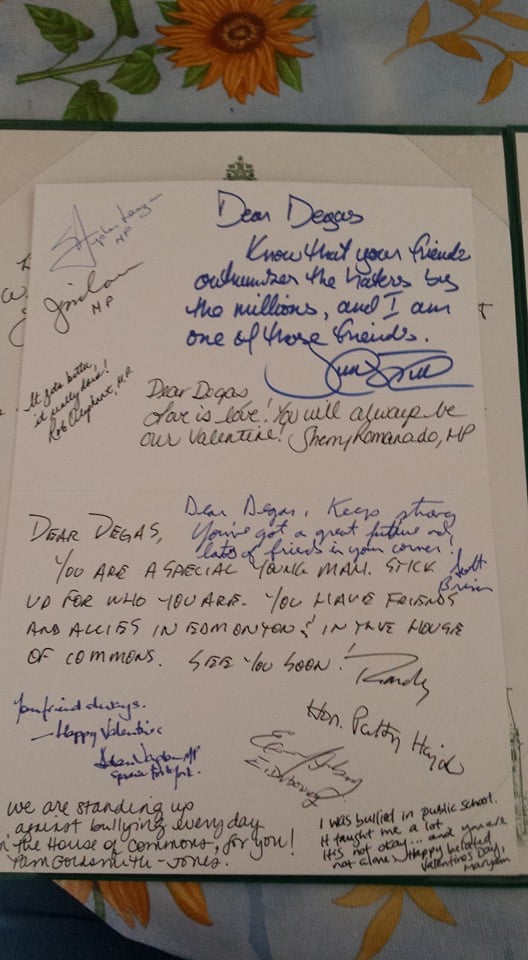 MP
Dear Degas
Know that your friends
outnumber the haters by
the millions, and I am
one of those friends.
MP
It gets better,
it really does!
Rob Oliphant, MP.
Dear Degas
Love is love! You will always be
our Valentine! Sherry Romanado, MP
Dear Degas, Keep strong
You've got a great future and
lots of friends in your corner!
Scott
Brison
DEAR DEGAS,
YOU ARE A SPECIAL YOUNG MAN. STICK
UP FOR WHO YOU ARE. YOU HAVE FRIENDS
AND ALLIES IN EDMONTON & IN THE HOUSE
OF COMMONS. SEE YOU SOON! Randy
Your friend always.
—Happy Valentine
Adam Vaughan MP
Hon. Patty Hajdu
we are standing up
against bullying every day
in the House of Commons, for you!
Pam Goldsmith-Jones.
I was bullied in public school.
It taught me a lot.
It's not okay... and you are
not alone. Happy belated
Valentine's Day,
Maryam